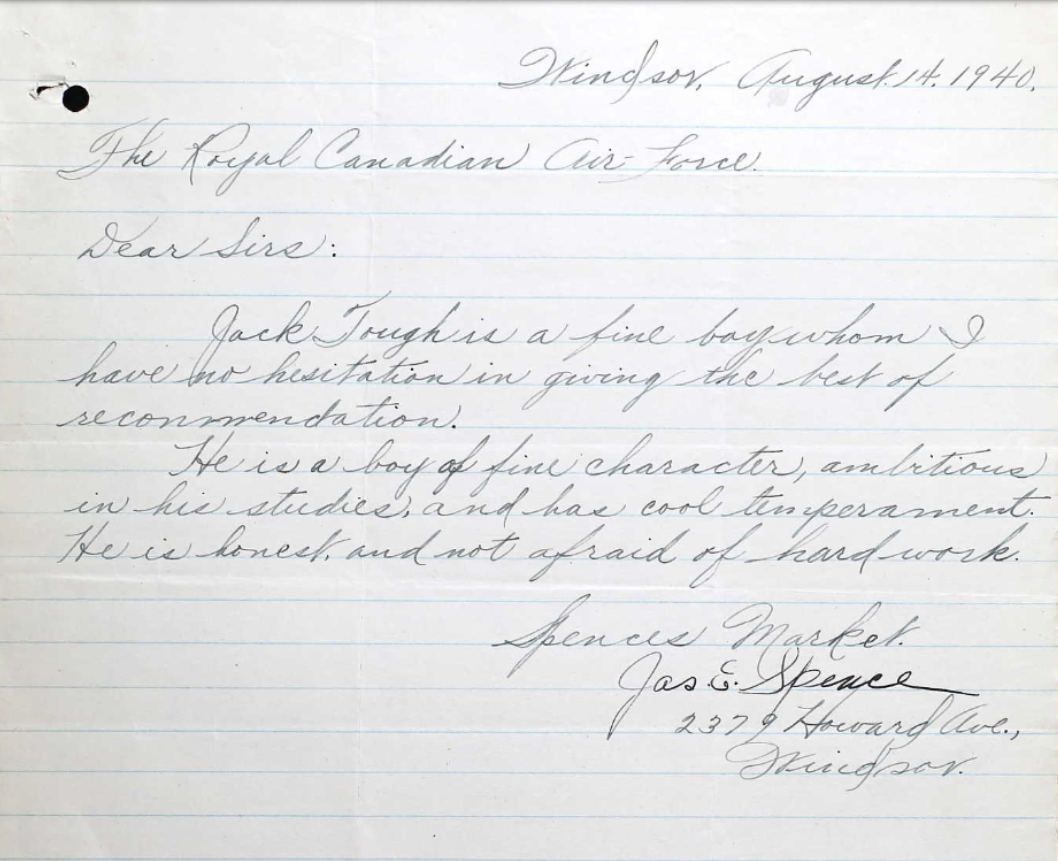 Windsor, August. 14. 1940.
The Royal Canadian Air-Force.
Dear Sirs:
Jack Tough is a fine boy whom I
have no hesitation in giving the best of
recommendation.
He is a boy of fine character, ambitious
in his studies, and has cool temperament.
He is honest, and not afraid of hard work.
Spences Market.
Jas. E. Spence
2379 Howard Ave.,
Windsor.